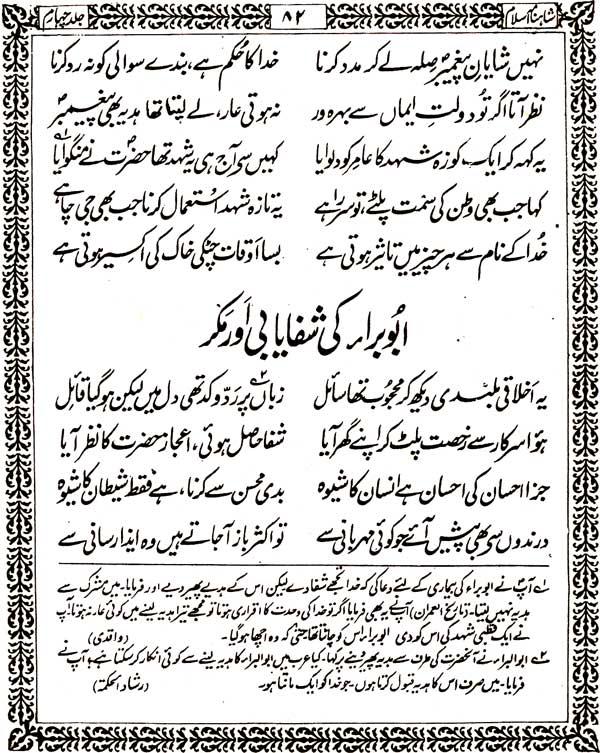 شاہنامۂ اسلام ۸۲ جلد چہارم
نہیں شایانِ پیغمبرؐ صلہ لے کر مدد کرنا خدا کا حُکم ہے، بندے سوالی کو نہ رد کرنا
نظر آتا اگر تُو دولتِ ایماں سے بہرہ ور نہ ہوتی عار، لے لیتا تھا ہدیہ بھی پیغمبرؐ
یہ کہہ کر ایک کوزہ شہد کا عامر کو دلوایا کہیں سے آج ہی یہ شہد تھا حضرتؐ نے منگوایا
کہا جب بھی وطن کی سمت پلٹے، تو سرِ راہے یہ تازہ شہد استعمال کرنا جب بھی جی چاہے
خُدا کے نام سے ہر چیز میں تاثیر ہوتی ہے بسا اَوقات چٹکی خاک کی اکسیر ہوتی ہے
ابُو براء کی شفایابی اَور مکر
یہ اَخلاقی بلندی دیکھ کر محجوب تھا سائل زباں پر ردّ و کد تھی دل میں لیکن ہو گیا قائل
ہؤا سرکار سے رُخصت پلٹ کر اپنے گھر آیا شفا حاصل ہوئی، اعجاز حضرت کا نظر آیا
جزا احسان کی احسان ہے انسان کا شیوہ بدی محسن سے کرنا، ہے فقط شیطان کا شیوہ
درندوں سے بھی پیش آئے جو کوئی مہربانی سے تو اکثر باز آ جاتے ہیں وہ ایذا رسانی سے
۱؎ آپؐ نے ابو براء کی بیماری کے لئے دعا کی کہ خدا تجھے شفا دے لیکن اس کے ہدیے پھیر دیے اور فرمایا۔ میں مشرک سے
ہدیہ نہیں لیتا۔ (تاریخ العمران) آپؐ نے یہ بھی فرمایا اگر تو خدا کی وحدت کا اقراری ہوتا تو مجھے تیرا ہدیہ لینے میں کوئی عار نہ ہوتا۔ آپؐ
نے ایک کپی شہد کی اس کو دی ابو براء اس کو چاٹتا تھا حتیٰ کہ وہ اچھا ہو گیا۔ (واقدی)
۲؎ ابو البراء نے آنحضرت کی طرف سے ہدیہ پھیرنے پر کہا۔ کیا عرب میں ابو البراء کا ہدیہ لینے سے کوئی انکار کر سکتا ہے، آپ نے
فرمایا۔ میں صرف اس کا ہدیہ قبول کرتا ہوں۔ جو خدا کو ایک مانتا ہو۔ (رشاد الحکمۃ)